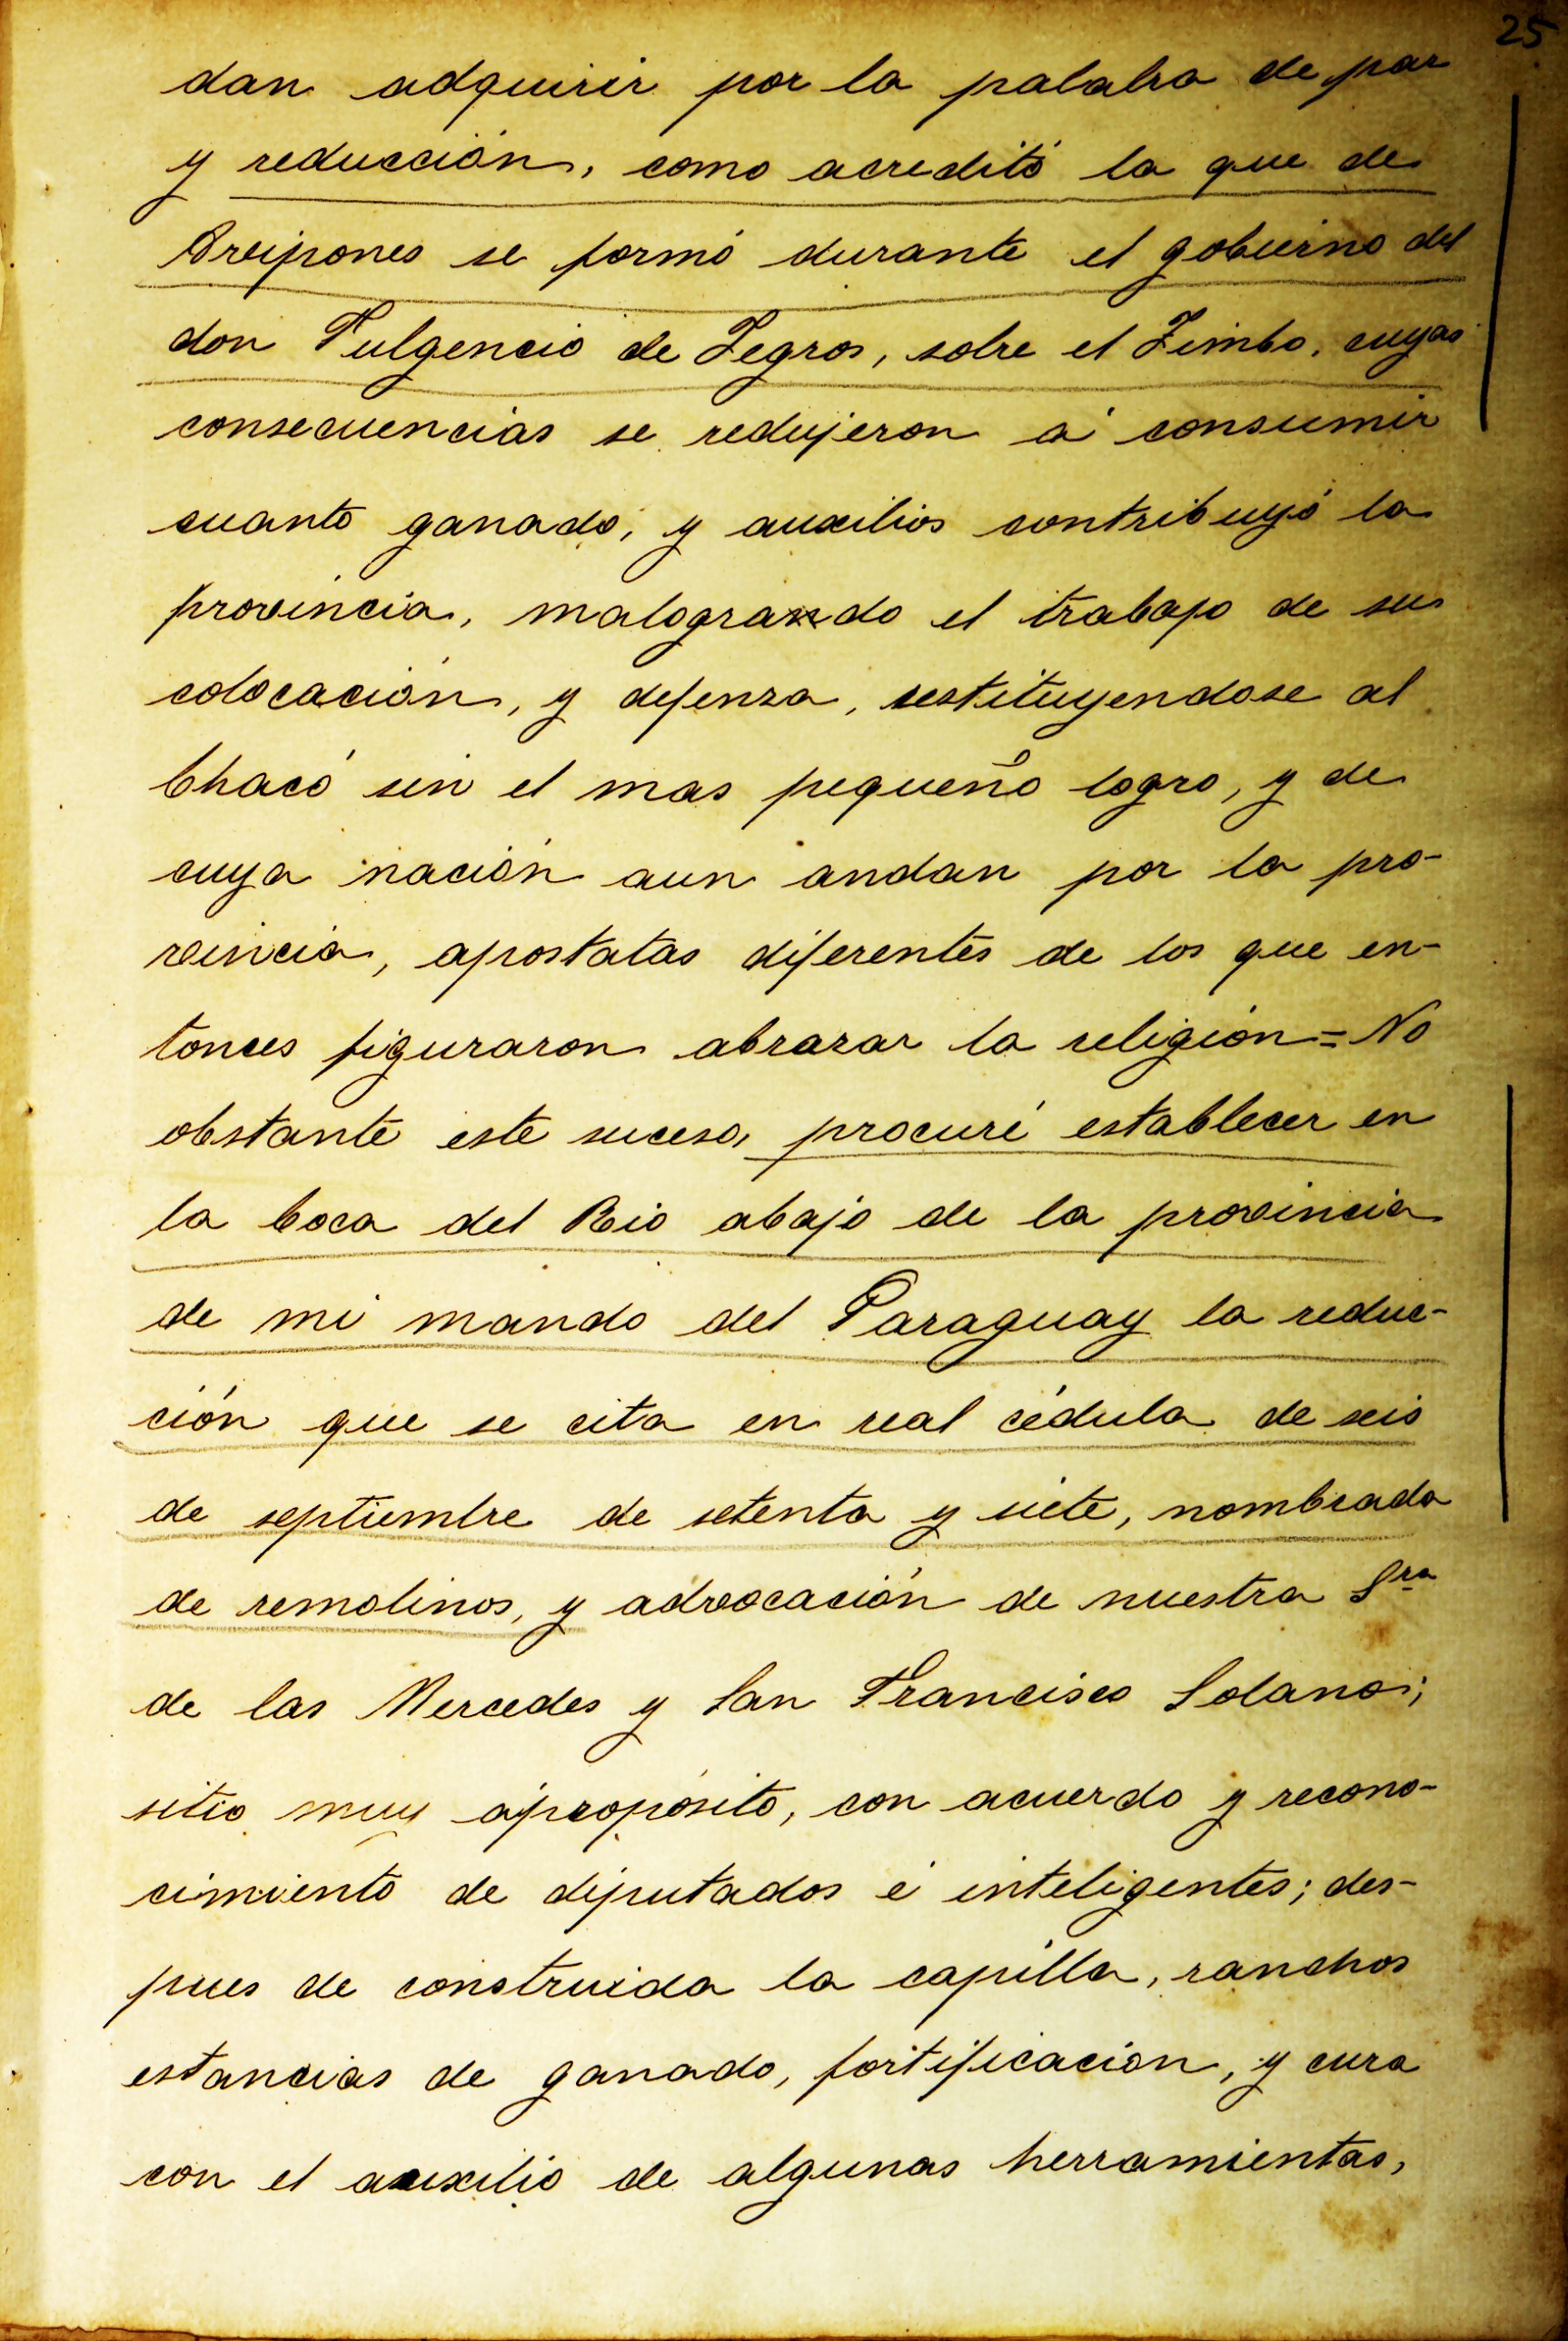 25
dan adquirir por la palabra de paz
y reducción, como acreditó la que de
Areipones se formó durante el gobierno del
don Fulgencio de Yegros, sobre el Timbo, cuyas
consecuencias se redujeron á consumir
cuanto ganado, y auxilios contribuyó la
provincia, malogrando el trabajo de su
colocación, y defenza, restituyendose al
Chaco sin el mas pequeño logro, y de
cuya nación aun andan por la pro-
vincia, apostatas diferentes de los que en-
tonces figuraron abrazar la religión = No
obstante este suceso, procuré establecer en
la boca del Rio abajo de la provincia
de mi mando del Paraguay la reduc-
ción que se cita en real cédula de seis
de septiembre de setenta y siete, nombrada
de remolinos, y advocación de nuestra Sra
de las Mercedes y San Francisco Solano;
sitio muy ápropósito, con acuerdo y recono-
cimiento de diputados é inteligentes; des-
pues de construida la capilla, ranchos
estancias de ganado, fortificación, y cura
con el auxilio de algunas herramientas,